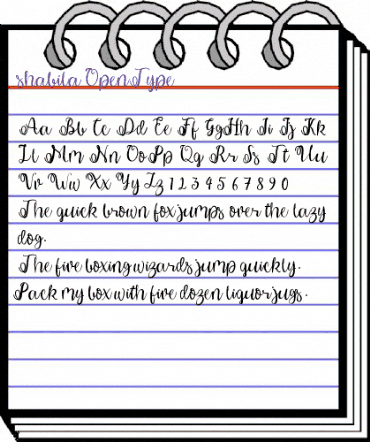 shabila OpenType
Aa Bb Cc Dd Ee Ff GgHh Ii Jj Kk
Ll Mm Nn OoPp Qq Rr Ss Tt Uu
Vv Ww Xx Yy Zz 1 2 3 4 5 6 7 8 9 0
The quick brown fox jumps over the lazy
dog.
The five boxing wizards jump quickly.
Pack my box with five dozen liquor jugs.